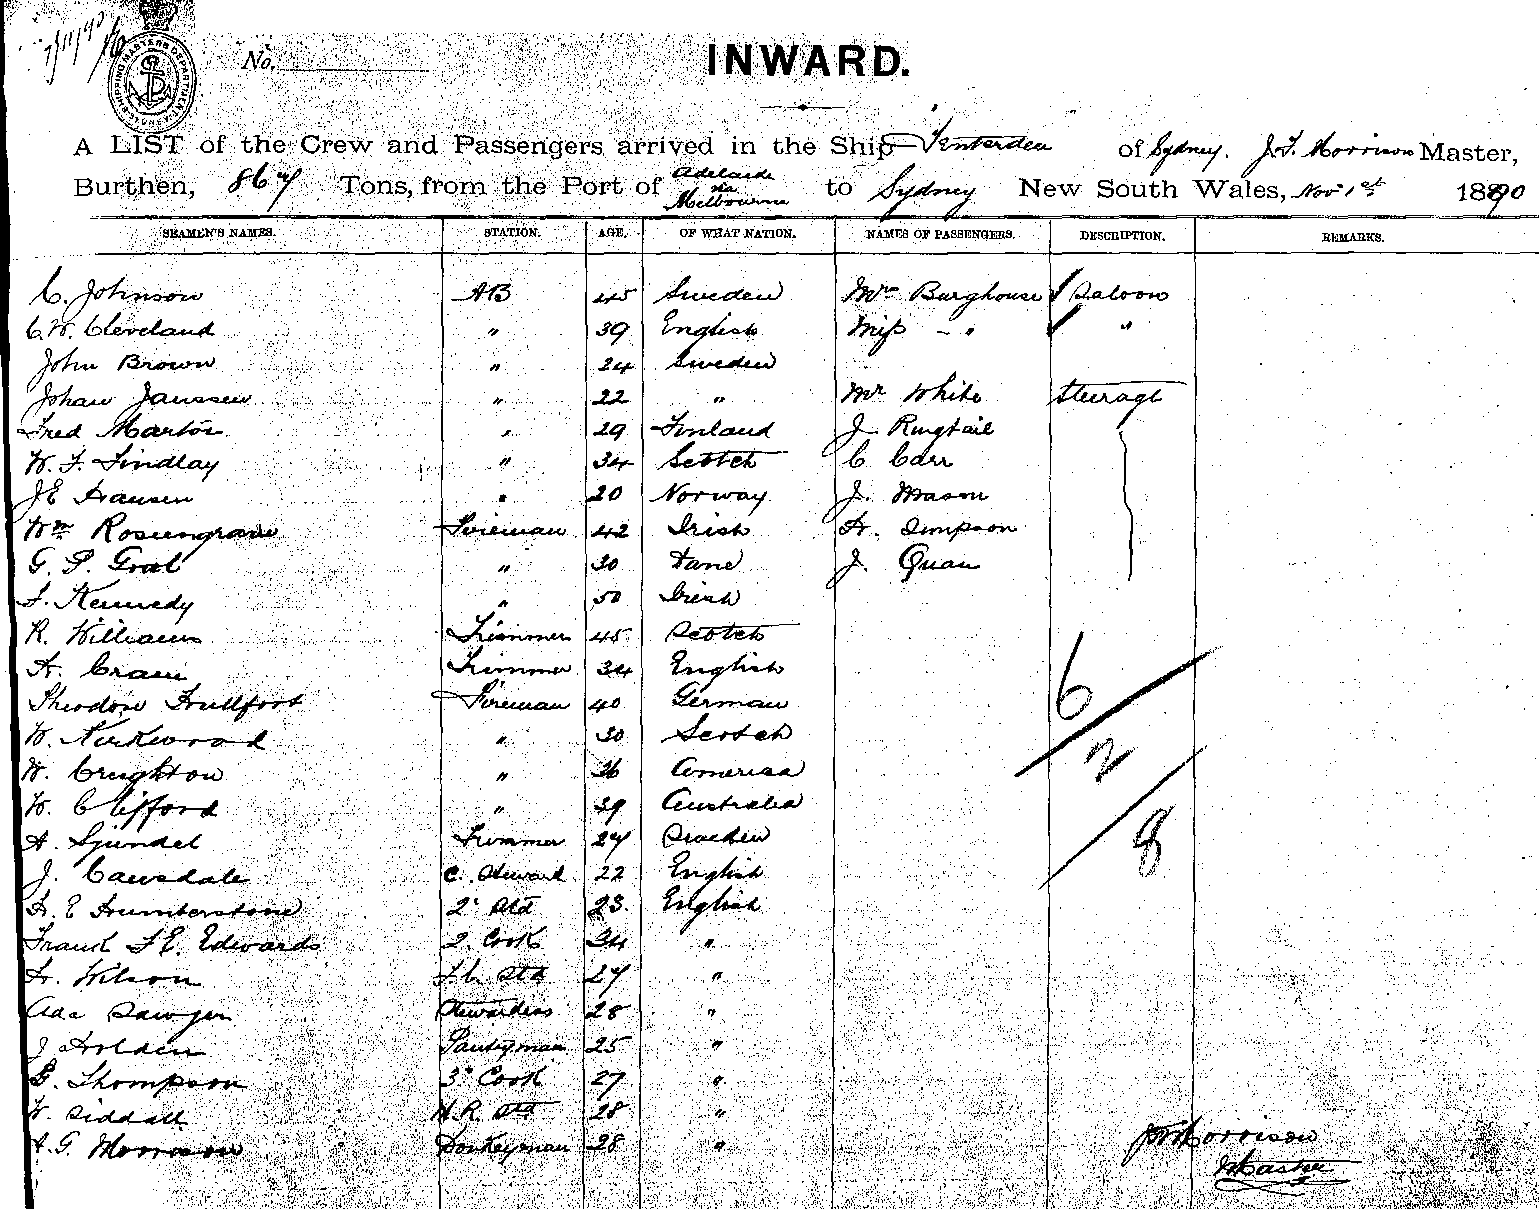 7/11/90
No.
INWARD.
A LIST of the Crew and Passengers arrived in the Ship Tenterden of Sydney. J. T. Morrison Master,
Burthen, 867 Tons, from the Port of Adelaide via Melbourne to Sydney New South Wales, Nov 1st 1890
SEAMEN'S NAMES. STATION. AGE. OF WHAT NATION. NAMES OF PASSENGERS. DESCRIPTION. REMARKS.
C. Johnson AB 45 Sweden Mrs Burghouse Saloon
C. W. Cleveland " 39 English Miss - " "
John Brown " 24 Sweden
Johan Janssen " 22 " Mr White Steerage
Fred " 29 Finland J. Ringtail
W. F. Findlay " 34 Scotch C Carr
J E Hansen " 20 Norway J. Mason
Wm Rosengrave Fireman 42 Irish H. Simpson
G. P. " 30 Dane J. Quan
F. Kennedy " 50 Irish
R. Williams Trimmer 45 Scotch
H. Crain Trimmer 34 English
Theodore Fireman 40 German
W. Kirkwood " 30 Scotch
W. Creighton " 36 America
W. Clifford " 39 Australia
A. Trimmer 27 Sweden
J. Cawsdale C. Steward 22 English
H. E Humberstone 2d Std 23 English
Frank F. E. Edwards 2. Cook 34 "
H. Wilson F C Std 27 "
Ada Sawyer Stewardess 28 "
J Holden Pantryman 25 "
G. Thompson 3d Cook 27 "
W. Siddall M. R. Std 28 "
A. G. Morrison Donkeyman 28 "
6
2
8
J T Morrison
Master